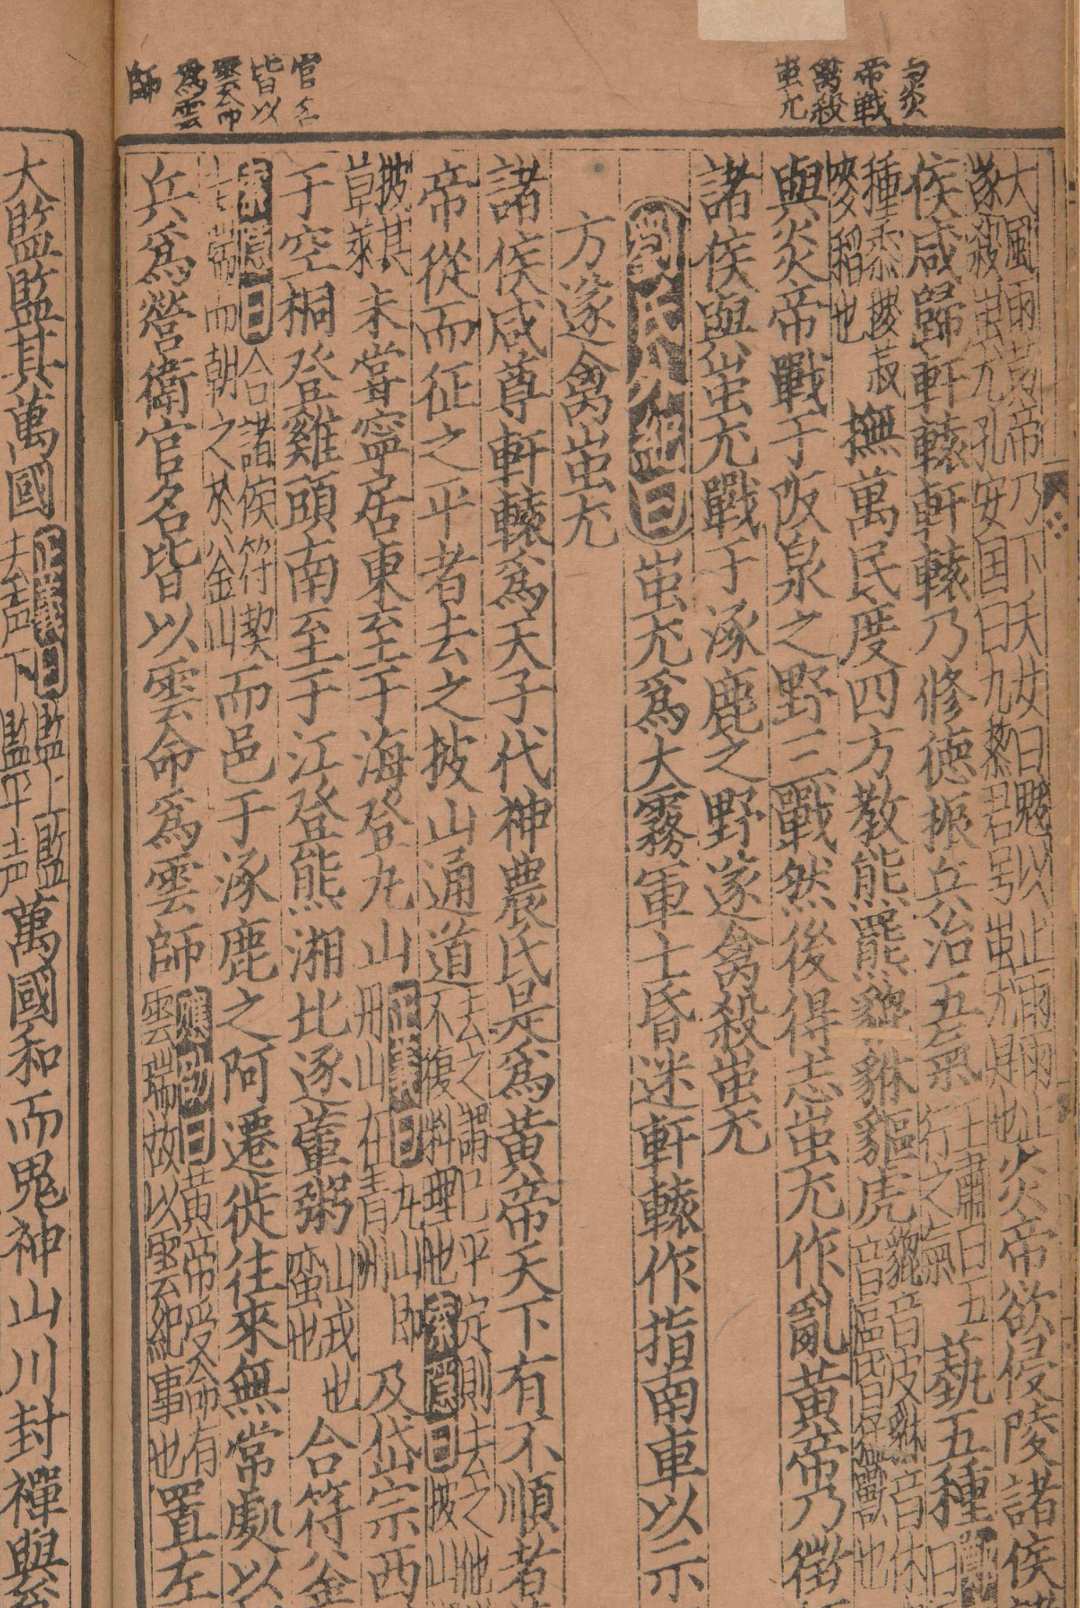 与炎
帝戦
禽殺
蚩尤
官名
皆以
雲命
為雲
師
大風雨黃帝乃下天女曰魃以止雨雨止
遂殺蚩尤孔安国曰九黎君号蚩尤是也
炎帝欲侵陵諸侯
侯咸歸軒轅軒轅乃修德振兵治五氣
王肅曰五
行之氣
蓺五種
曰
種黍稷菽
麥稻也
撫萬民度四方教熊羆貔貅貙虎
貔音皮貅音休
音區皆猛獸也
與炎帝戰于阪泉之野三戰然後得志蚩尤作亂黃帝乃徵
諸侯與蚩尤戰于涿鹿之野遂禽殺蚩尤
劉氏外紀曰蚩尤爲大霧軍士昏迷軒轅作指南車以示
方遂禽蚩尤
諸侯咸尊軒轅爲天子代神農氏是爲黃帝天下有不順者
帝從而征之平者去之披山通道
去之謂已平定則去之他
不復料理也索隱曰披山
披其
草萊
未嘗寧居東至于海登丸山
正義曰丸山即
丹山在青州
及岱宗西
于空桐登雞頭南至于江登熊湘北逐葷粥
山戎也
蛮也
合符釜
索隱曰合諸侯符契
而朝之於釜山
而邑于涿鹿之阿遷徙往來無常處以
兵爲營衛官名皆以雲命爲雲師
應劭曰黃帝受命有
雲瑞故以雲紀事也
置左
大監監其萬國
正義曰監上監
去声下監平声
萬國和而鬼神山川封禪與爲